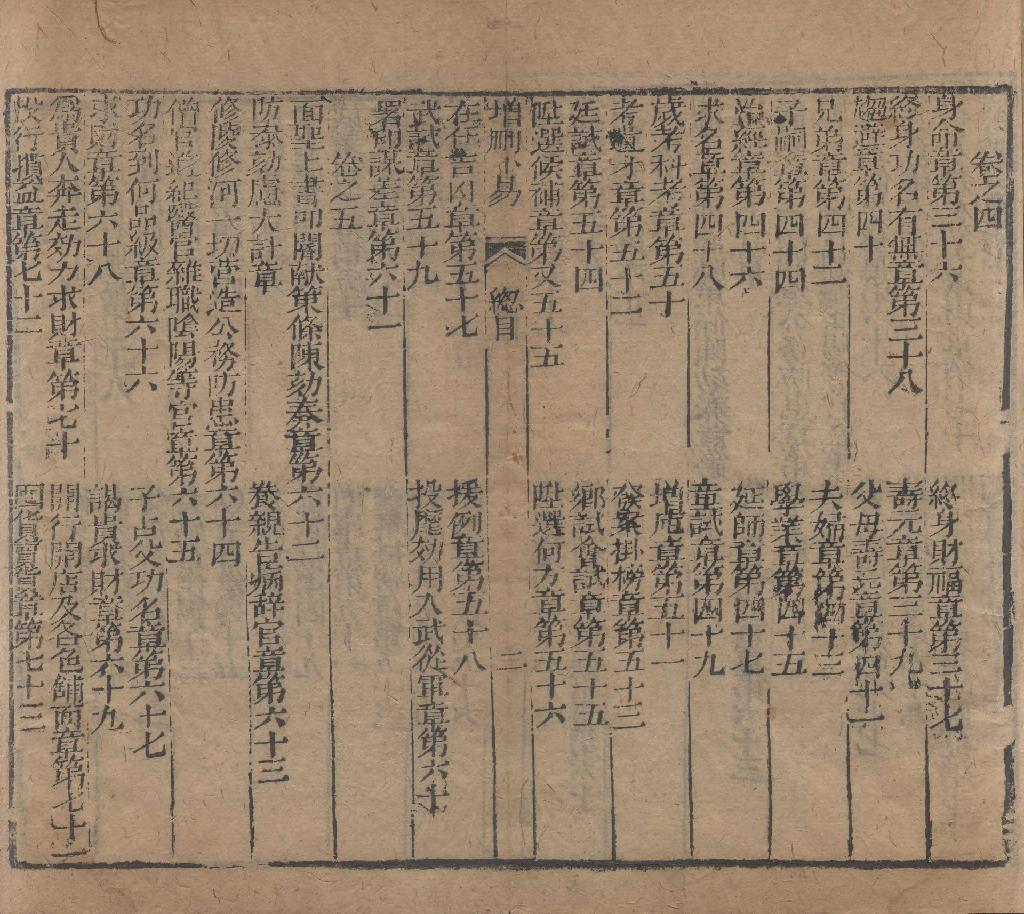 卷之四
身命章第三十六 終身財福章第三十七
終身功名有無章第三十八 壽元章第三十九
趨避章第四十 父母壽元章第四十一
兄弟章第四十二 夫婦章第四十三
子嗣章第四十四 學業章第四十五
治經章第四十六 延師章第四十七
求名章第四十八 童試章第四十九
歲考科考章第五十 增廩章第五十一
考遺才章第五十二 發案掛榜章第五十三
廷試章第五十四 鄉試會試章第五十五
陞選候補章第又五十五 陞選何方章第五十六
增删卜易 總目 二
在任吉凶章第五十七 援例章第五十八
武試章第五十九 投麾効用入武從軍章第六十
署印謀差章第六十一
卷之五
面聖上書叩閽献策條陳劾奏章第六十二
防叅劾慮大計章 養親告病辞官章第六十三
修陵修河一切营造公務防患章第六十四
僧官道紀醫官雜職陰陽等官章第六十五
功名到何品級章第六十六 子占父功名章第六十七
求財章第六十八 謁貴求財章第六十九
為貴人奔走効力求財章第七十
開行開店及各色鋪面章第七十一
投行損益章第七十二 囤貨賣貨章第七十三